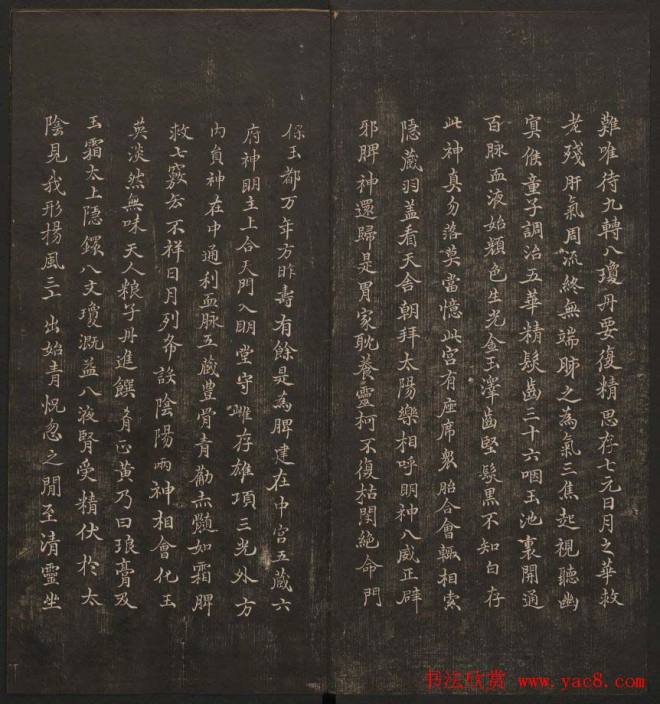 難准待九轉八瓊丹要復精思存七元日月之華救
老殘肝氣周流終無端肺之為氣三焦起視聽幽
冥候童子調治五華精髮齒三十六咽玉池裏開通
百脉血液始顏色生光金玉澤齒堅髮黑不知白存
此神真勿落莫當憶此宮有座席衆胎合會輒相索
隱藏羽蓋看天舍朝拜太陽樂相呼明神八威正辟
邪脾神還歸是胃家耽養靈柯不復枯閉絕命門
保玉都万年方昨壽有餘是為脾建在中宮五藏六
府神明主上合天門入明堂守雌存雄項三光外方
內員神在中通利血脉五藏豐骨青勸赤髓如霜脾
救七竅去不祥日月列布設陰陽兩神相會化玉
英淡然無味天人粮子丹進饌肴正黃乃曰琅膏及
玉霜太上隱鐶八文瓊溉益八液腎受精伏於太
陰見我形揚風三出始青怳忽之間至清靈坐
书法欣赏 www.yac8.com